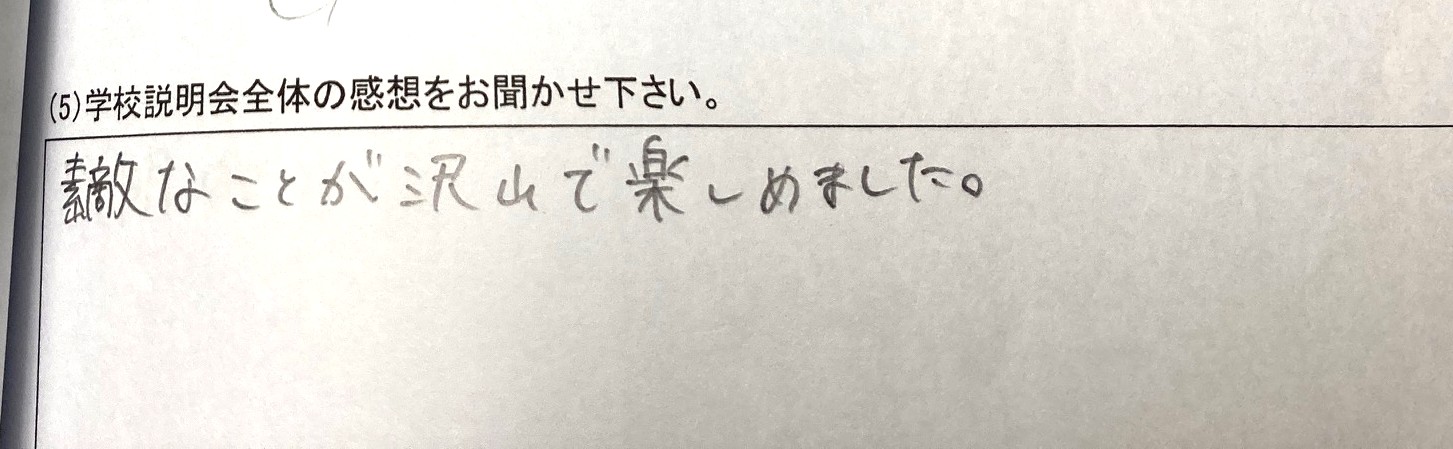 (5)学校説明会全体の感想をお聞かせ下さい。
素敵なことが沢山で楽しめました。